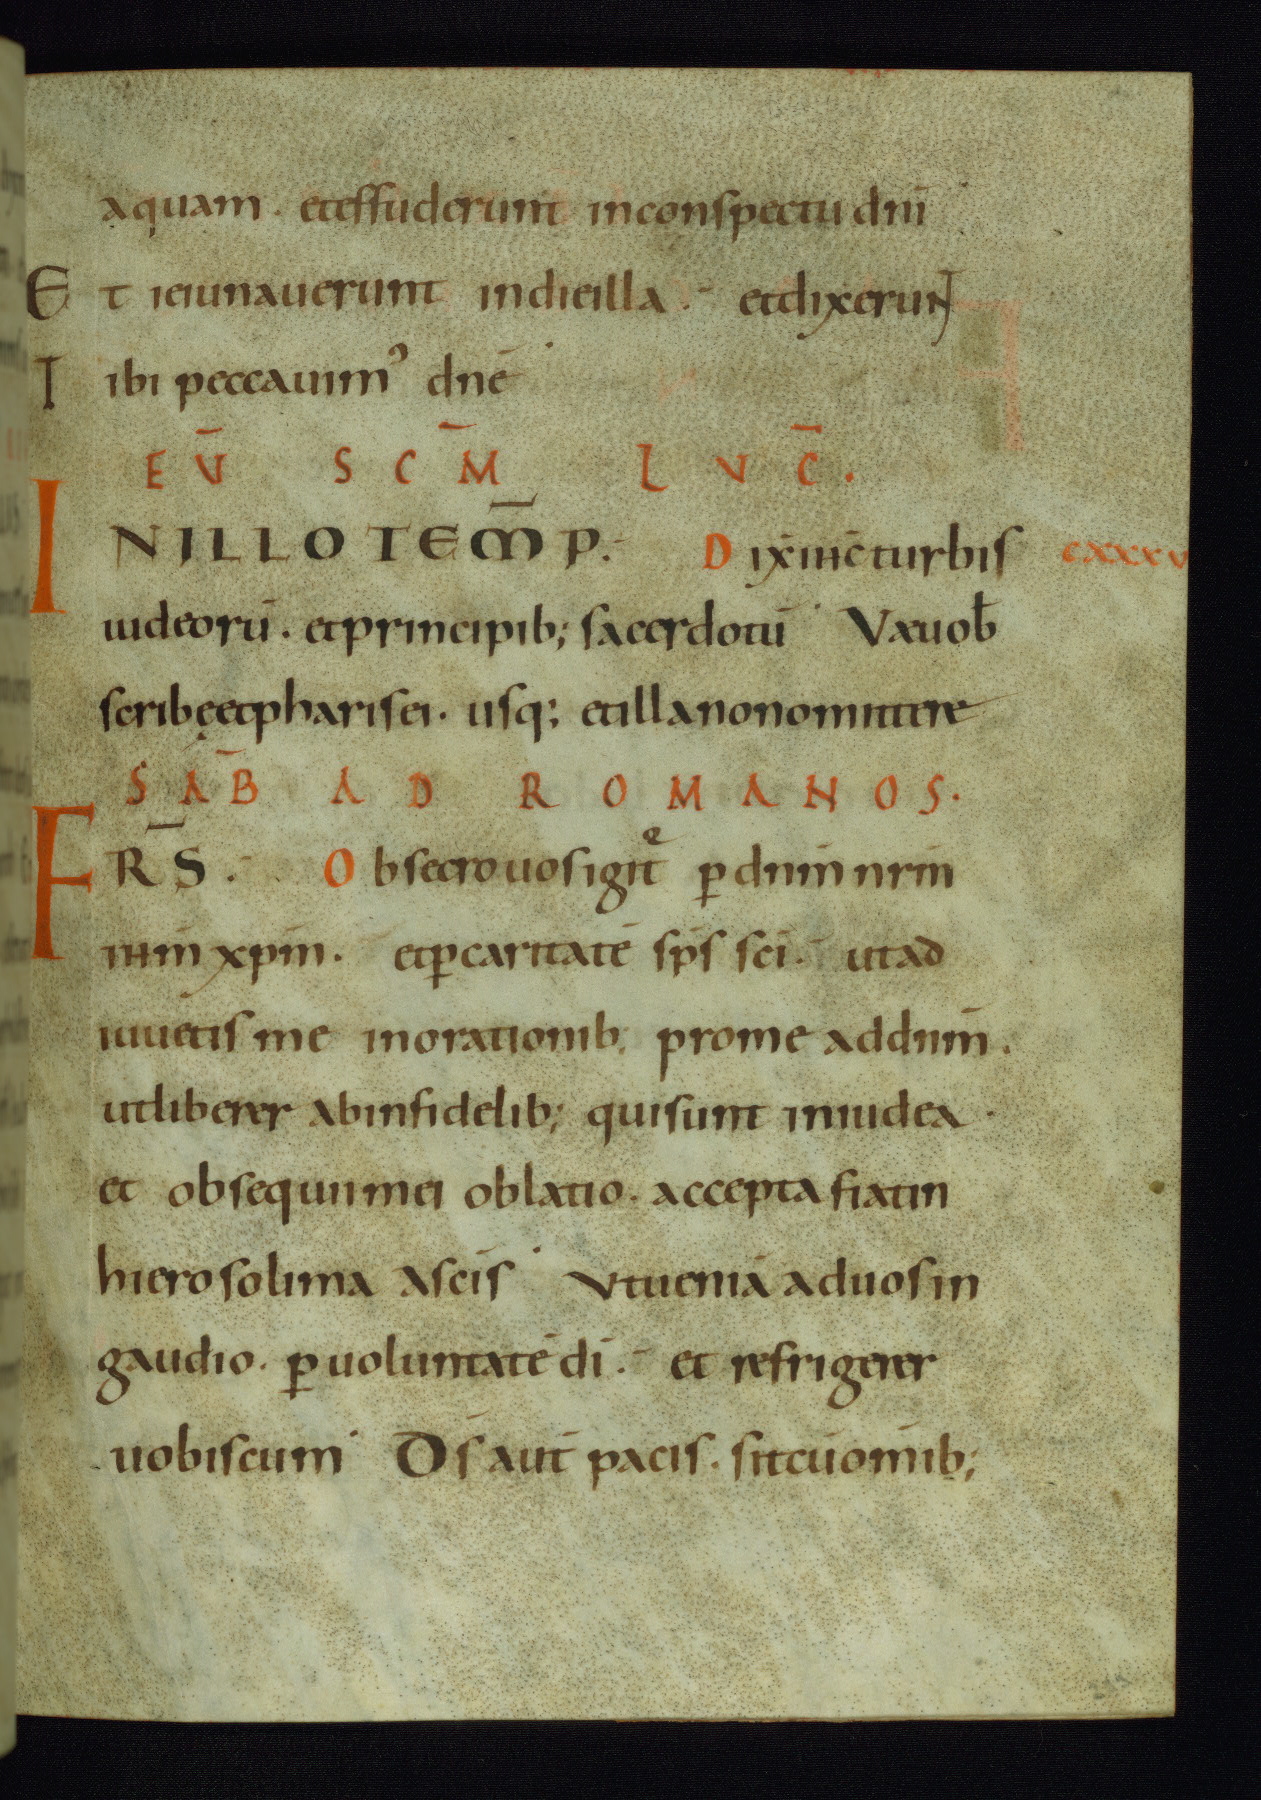 aquam. eteffuderunt inconspectu dnī
Et ieiunauerunt indieilla. etdixerunt
Iibi peccauimꝰ dnē
EṼ SCM̄ LVC̄.
INILLOTEM̄P. Dix̄ ihc̄ turbis cxxxv
iudeorū. etprincipib; sacerdotū Vaeuob̄
scribęetpharisei. usq; etillanonomittere
SAB̄ AD ROMANOS.
FRS̄. Obsecrouosigit̄ ꝑdnm̄ nrm̄
ihm̄ xpm̄. etꝑcaritatē sps̄ scī. utad
iuuetis me inorationib; prome addnm̄.
utliberer abinfidelib; quisunt iniudea.
et obsequiimei oblatio. accepta fiatin
hierosolima ascis̄ Vtueniā aduosin
gaudio. ꝑuoluntatē dī. et refrigerer
uobiscum Ds̄ aut̄ pacis. sitcūomīb;